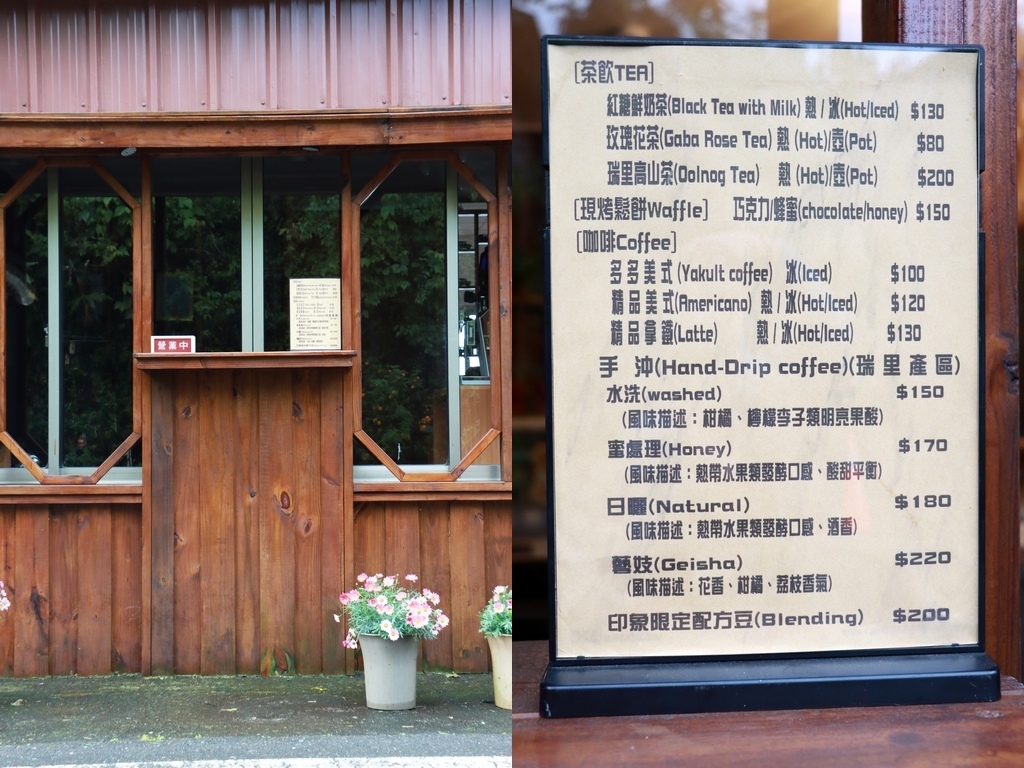 營業中
[茶飲TEA]
紅糖鮮奶茶(Black Tea with Milk) 熱 / 冰(Hot/Iced) $130
玫瑰花茶(Gaba Rose Tea) 熱 (Hot)/壺(Pot) $80
瑞里高山茶(Oolnog Tea) 熱 (Hot)/壺(Pot) $200
[現烤鬆餅Waffle] 巧克力/蜂蜜(chocolate/honey) $150
[咖啡Coffee]
多多美式(Yakult coffee) 冰(Iced) $100
精品美式(Americano) 熱 / 冰(Hot/Iced) $120
精品拿鐵(Latte) 熱 / 冰(Hot/Iced) $130
手 沖(Hand-Drip coffee)(瑞里產區)
水洗(washed) $150
(風味描述：柑橘、檸檬李子類明亮果酸)
蜜處理(Honey) $170
(風味描述：熱帶水果類發酵口感、酸甜平衡)
日曬(Natural) $180
(風味描述：熱帶水果類發酵口感、酒香)
藝妓(Geisha) $220
(風味描述：花香、柑橘、荔枝香氣)
印象限定配方豆(Blending) $200